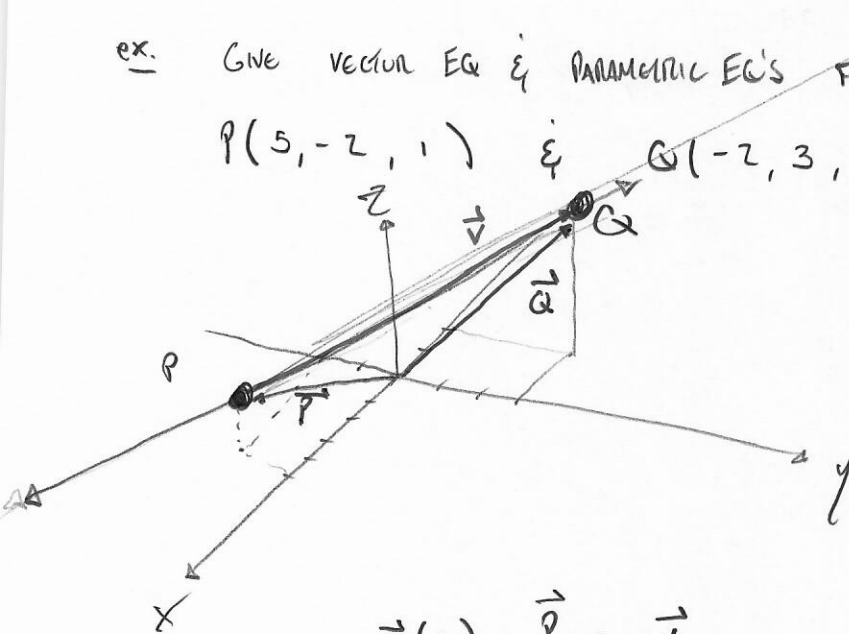 ex. GIVE VECTOR EQ & PARAMETRIC EQ'S F
P(5,-2,1) & Q(-2,3,
Z
V
Q
Q
P
P
Y
X
P